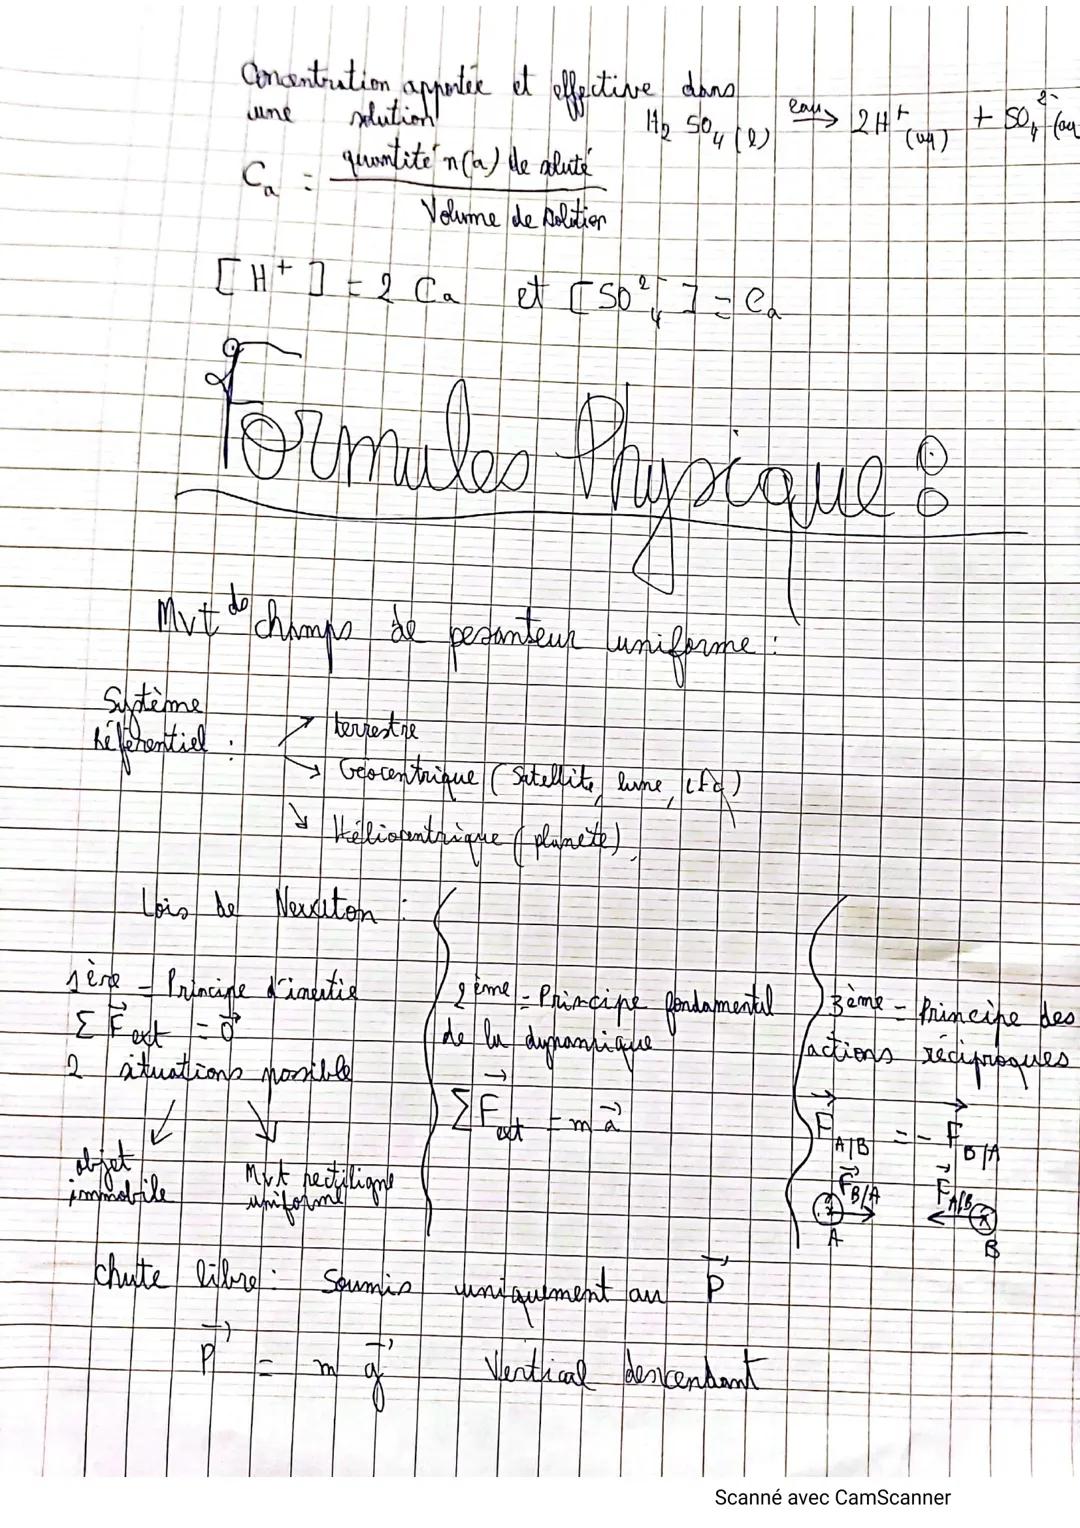 Concentration apportée et effective dans
une solution
H₂ SO₄ (l) eau → 2H⁺ (aq) + SO₄²⁻ (aq
Ca = quantité n(a) de soluté
Volume de solution
[H⁺] = 2 Ca et [SO₄²⁻] = Ca
Formules Physique :
Mvt de champs de pesanteur uniforme :
Système
Référentiel : ↗ terrestre
↘ Géocentrique ( Satellite, lune,
↘ Héliocentrique ( planète)
Lois de Newton :
1ère - Principe d'inertie
Σ F⃗ext = 0⃗
2 situations possible
↙ ↘
objet
immobile
Mvt rectiligne
uniforme
2ème - Principe fondamental
de la dynamique
ΣF⃗ext = m a⃗
3ème - Principe des
actions réciproques
F⃗A/B = - F⃗B/A
F⃗B/A F⃗A/B
A B
chute libre : Soumis uniquement au P⃗
P⃗ = m g⃗ Vertical descendant
Scanné avec CamScanner